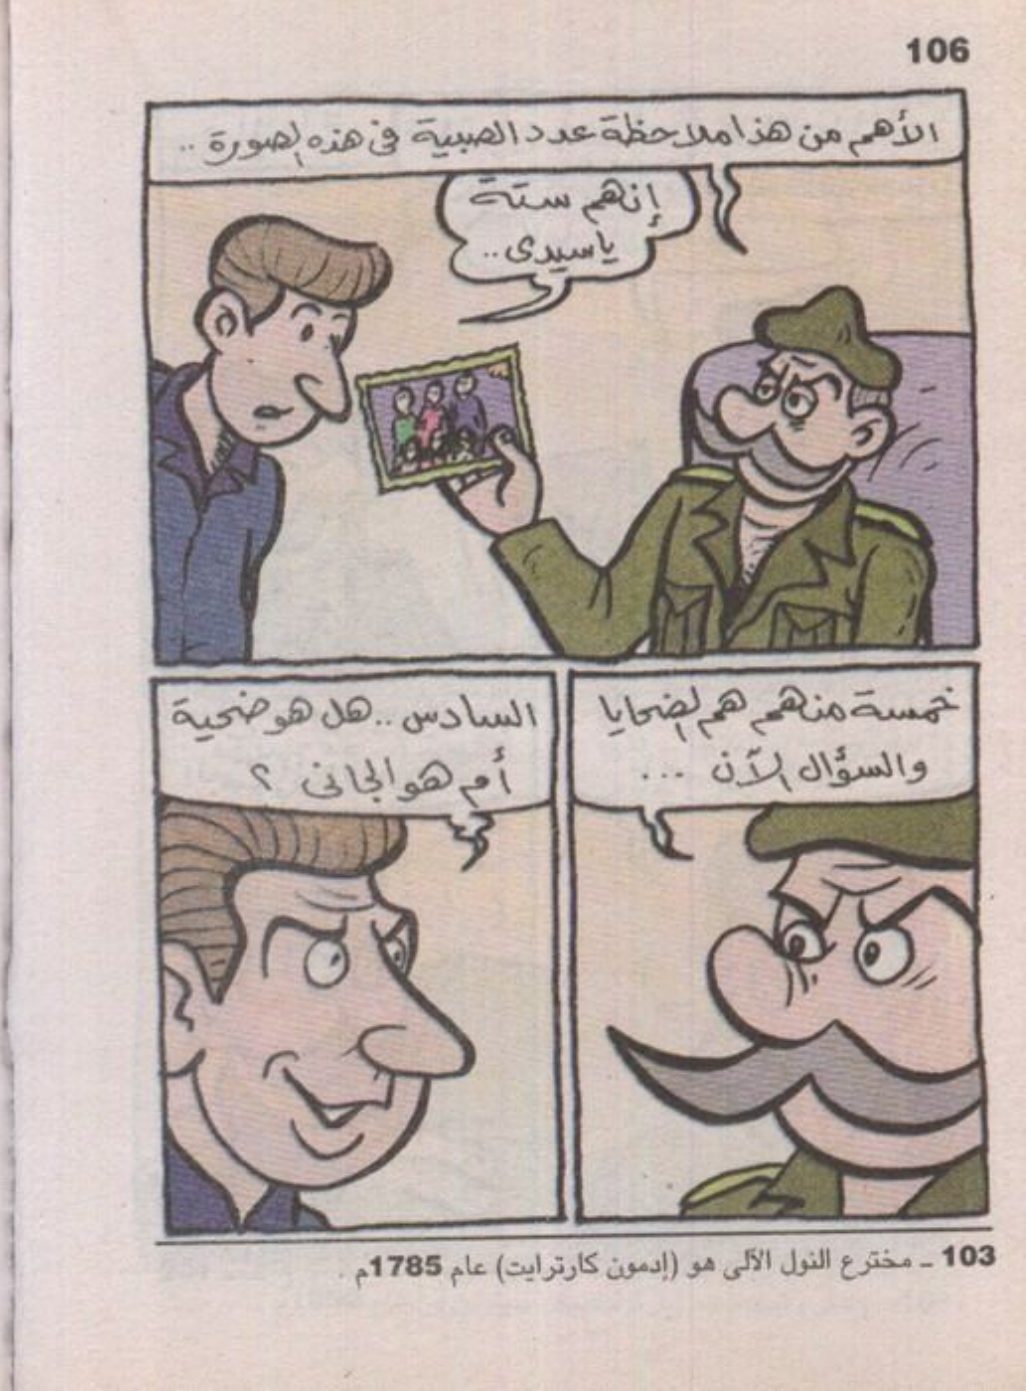 106
الأهم من هذا ملاحظة عدد الصبية فى هذه الصورة ..
إنهم ستة
يا سيدى ..
خمسة منهم هم الضحايا
والسؤال الآن ...
السادس .. هل هو ضحية
أم هو الجانى ؟
103 ـ مخترع النول الآلى هو (إدمون كارترايت) عام 1785م .